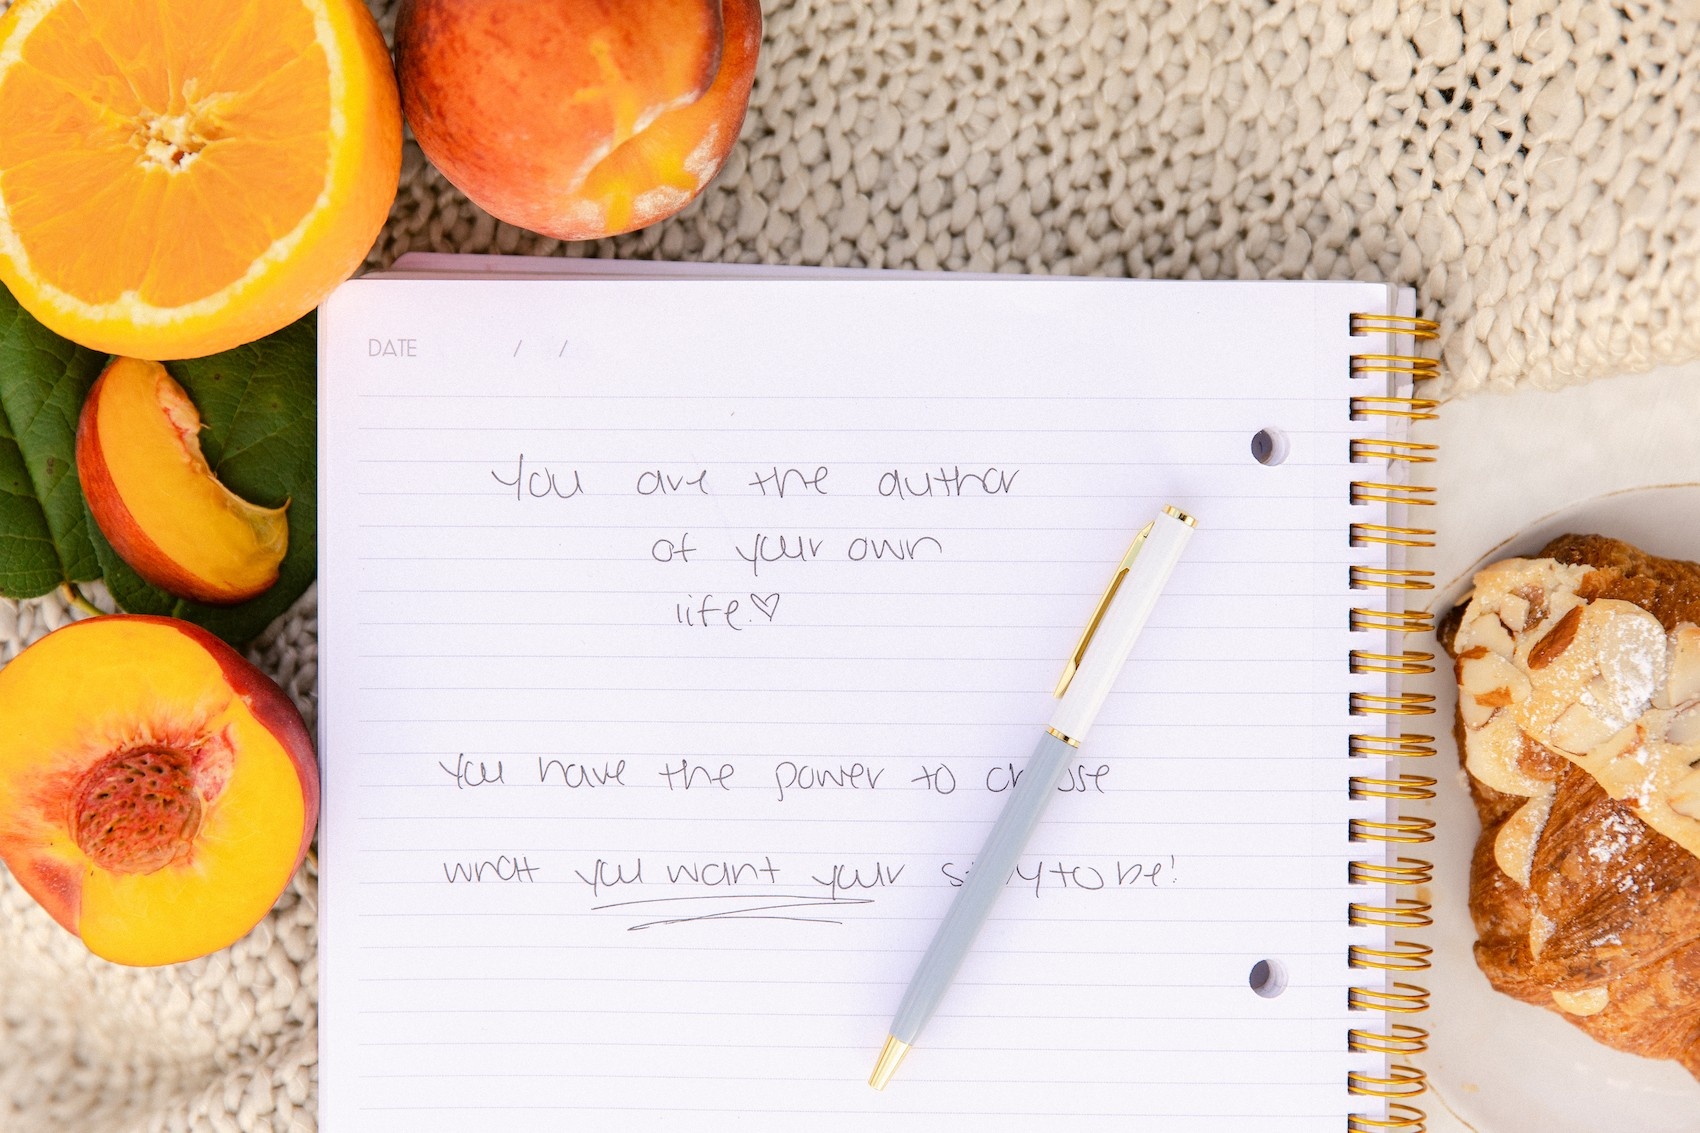 DATE / /
You are the author
of your own
life.♡
You have the power to choose
what you want your story to be!